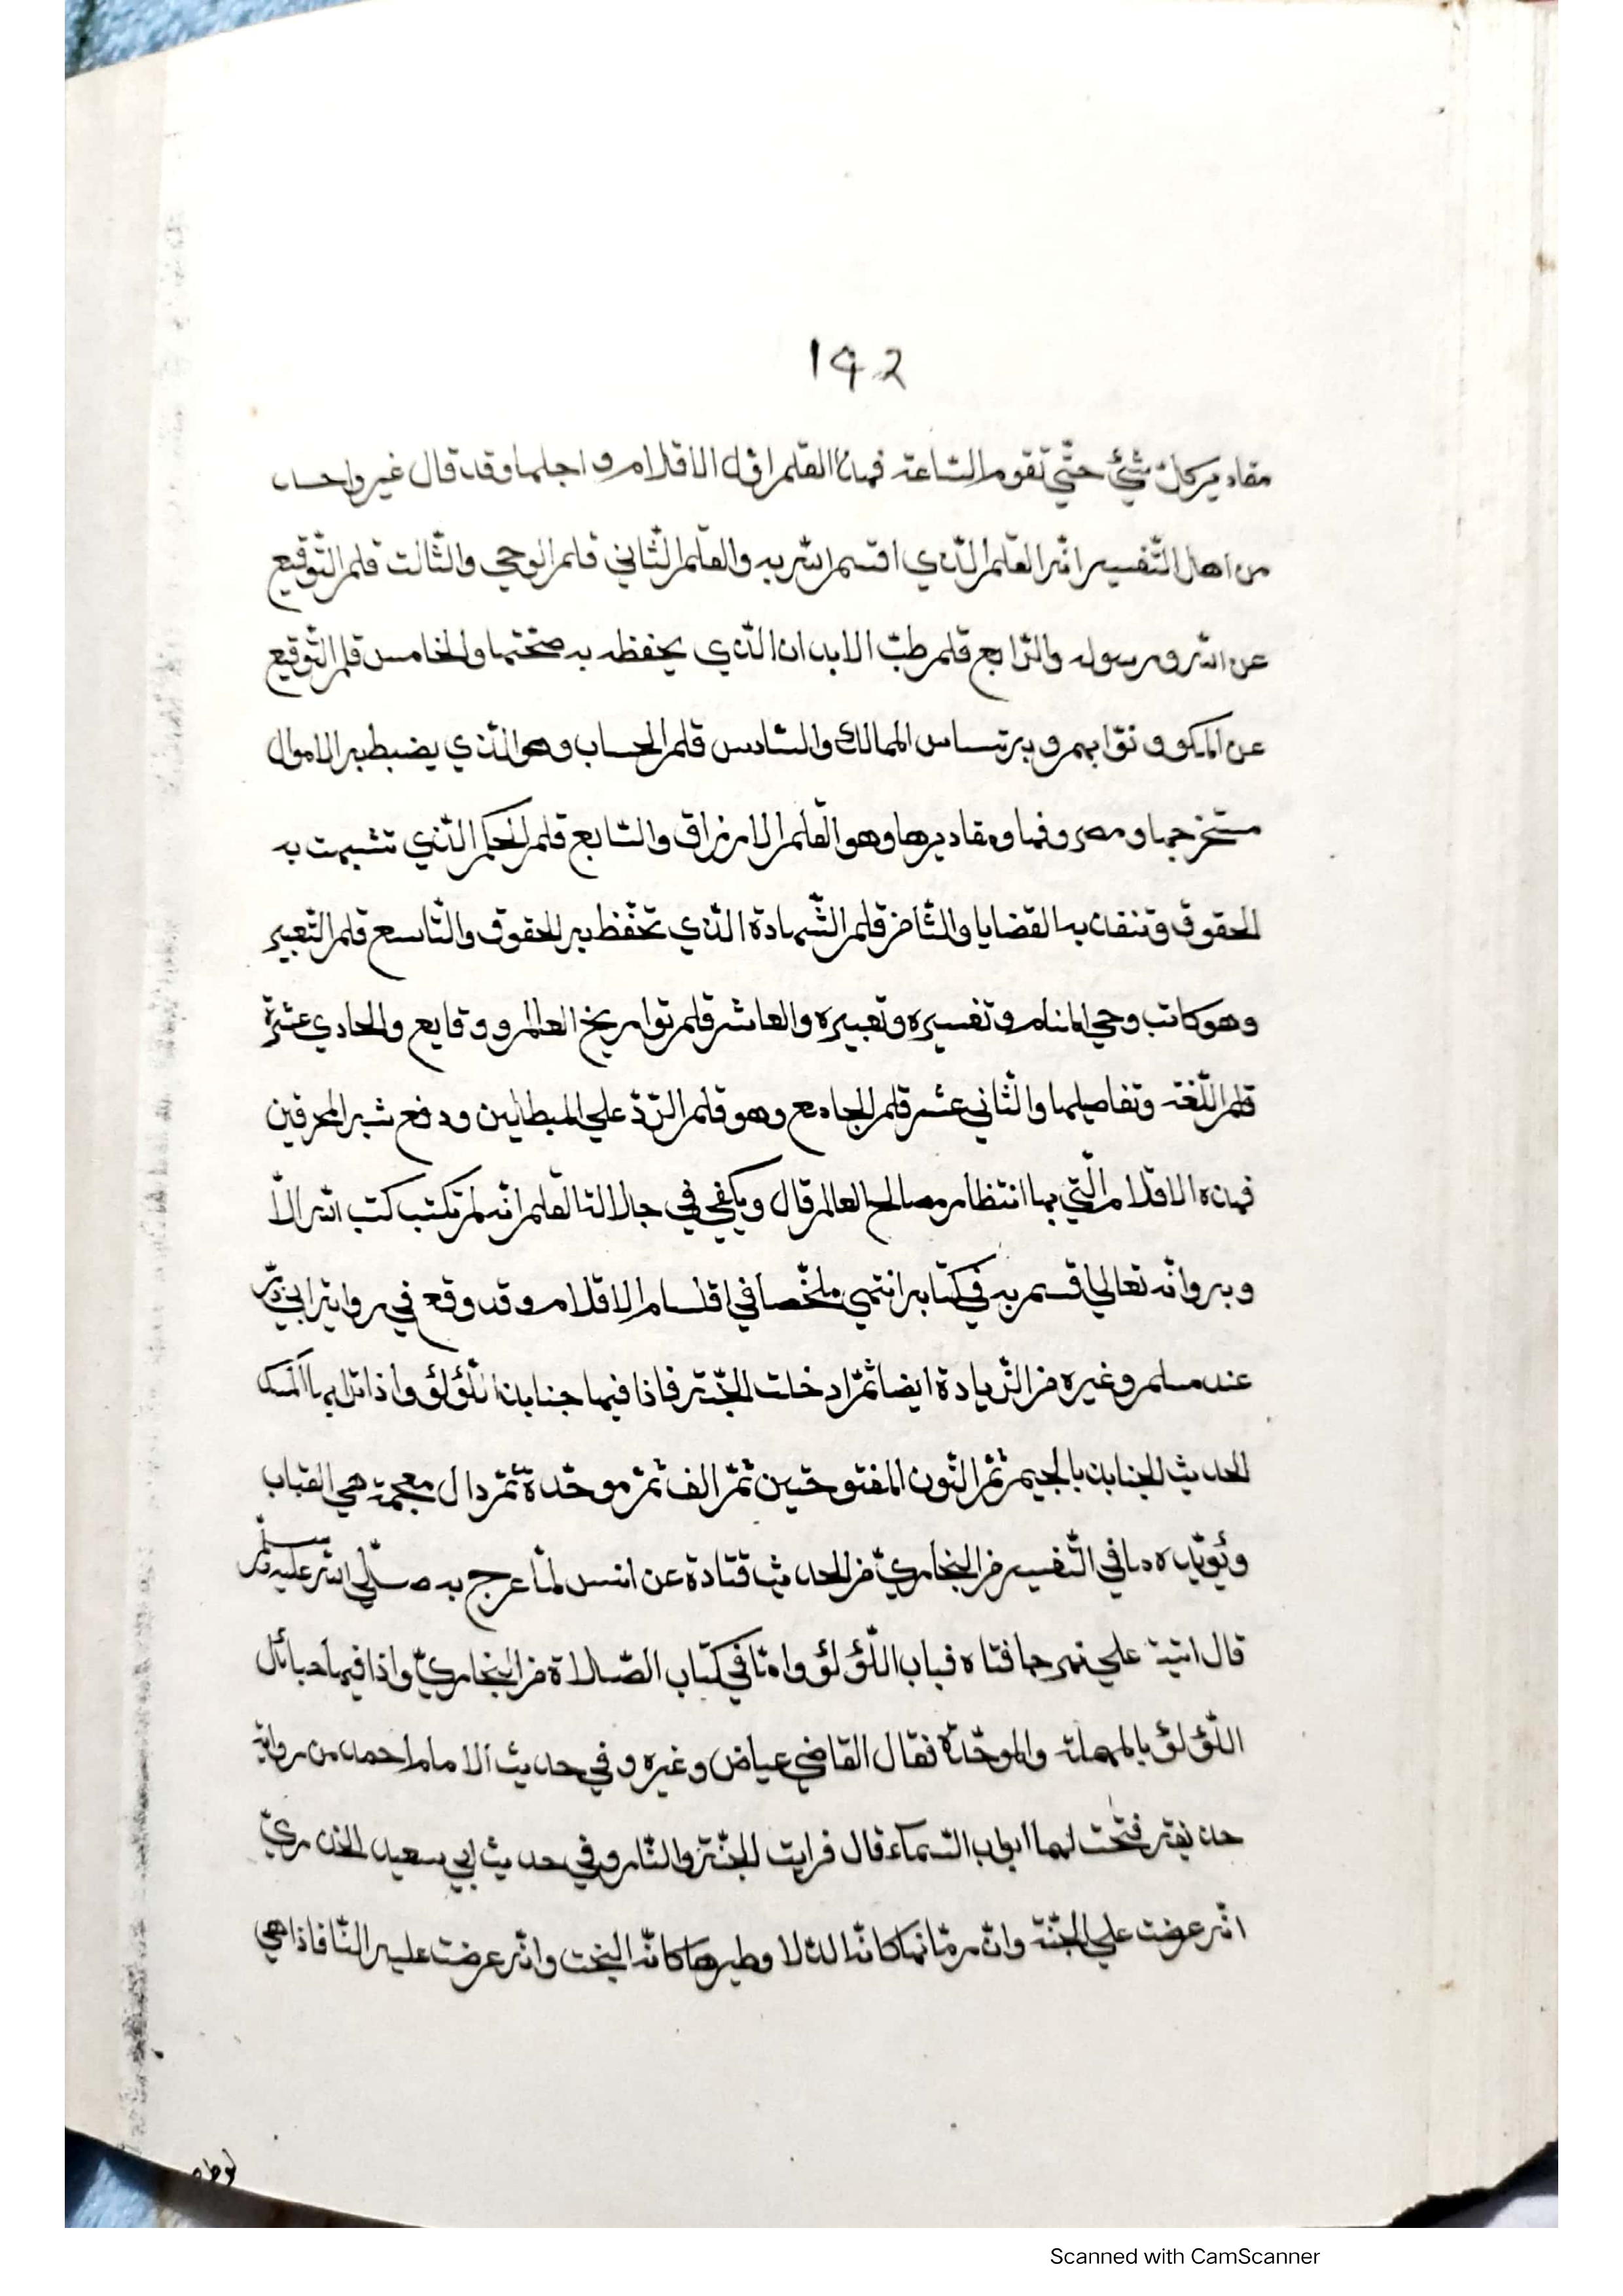 142
مقادير كلّ شيئ حتّي تقوم السّاعة فهذا القلم اوّل الاقلام و اجلها وقد قال غير واحد
من اهل التّفسير انّه القلم الّذي اقسم الله به والقلم الثّاني قلم الوحي والثّالث قلم التّوقيع
عن الله ورسوله والرّابع قلم طبّ الابدان الّذي يحفظ به صحّتها والخامس قلم التّوقيع
عن الملكو و نوّابهم و به تساس الممالك والسّادس قلم الحساب وهو الّذي يضبط به الاموال
مستخرجها ومصروفها ومقاديرها وهو القلم الارزاق والسّابع قلم الحكم الّذي تثبت به
الحقوق وتنفذ به القضايا والثّامن قلم الشّهادة الّذي تحفّظ به الحقوق والتّاسع قلم التّعبير
وهو كاتب وحي المنام و تفسيره وتعبيره والعاشر قلم تواريخ العالم و وقايع والحادي عشرة
قلم اللّغة وتفاصيلها والثّاني عشر قلم الجامع وهو قلم الرّدّ علي المبطلين ودفع شبه المحرفين
فهذه الاقلام الّتي بها انتظام مصالح العالم قال ويكفي في جلالة القلم انّه لم تكتب كتب الله الاّ
و به وانّه تعالي اقسم به في كتابه انتهي ملخّصا في اقسام الاقلام وقد وقع في رواية ابي ذرّ
عند مسلم وغيره من الزّيادة ايضا ثمّ ادخلت الجنّة فاذا فيها جنابذ اللّؤلؤ واذا ترابها المسك
الحديث الجنابذ بالجيم ثمّ النّون المفتوحتين ثمّ الف ثمّ موحّدة ثمّ دال معجمة هي القباب
ويؤيّده ما في التّفسير من البخاريّ من الحديث قتادة عن انس لمّا عرج به صلّي الله عليه وسلّم
قال اتيت علي نهر حافتاه قباب اللّؤلؤ وامّا في كتاب الصّلاة من البخاريّ واذا فيها حبائل
اللّؤلؤ بالمهملة والموحّدة فقال القاضي عياض وغيره وفي حديث الامام احمد من رواية
حذيفة فتحت لهما ابواب السّماء قال فرايت الجنّة والنّار وفي حديث ابي سعيد الخدريّ
انّه عرضت علي الجنّة وانّ رمّانها كانّه الدّلا وطيرها كانّه البخت وانّه عرضت عليه النّا فاذا هي
Scanned with CamScanner